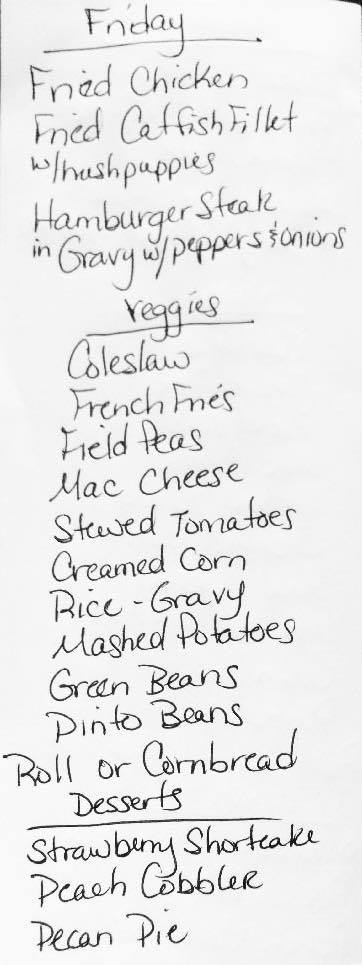 Friday
Fried Chicken
Fried Catfish Fillet
w/hushpuppies
Hamburger Steak
in Gravy w/peppers & onions
Veggies
Coleslaw
French Fries
Field Peas
Mac Cheese
Stewed Tomatoes
Creamed Corn
Rice - Gravy
Mashed Potatoes
Green Beans
Pinto Beans
Roll or Cornbread
Desserts
Strawberry Shortcake
Peach Cobbler
Pecan Pie